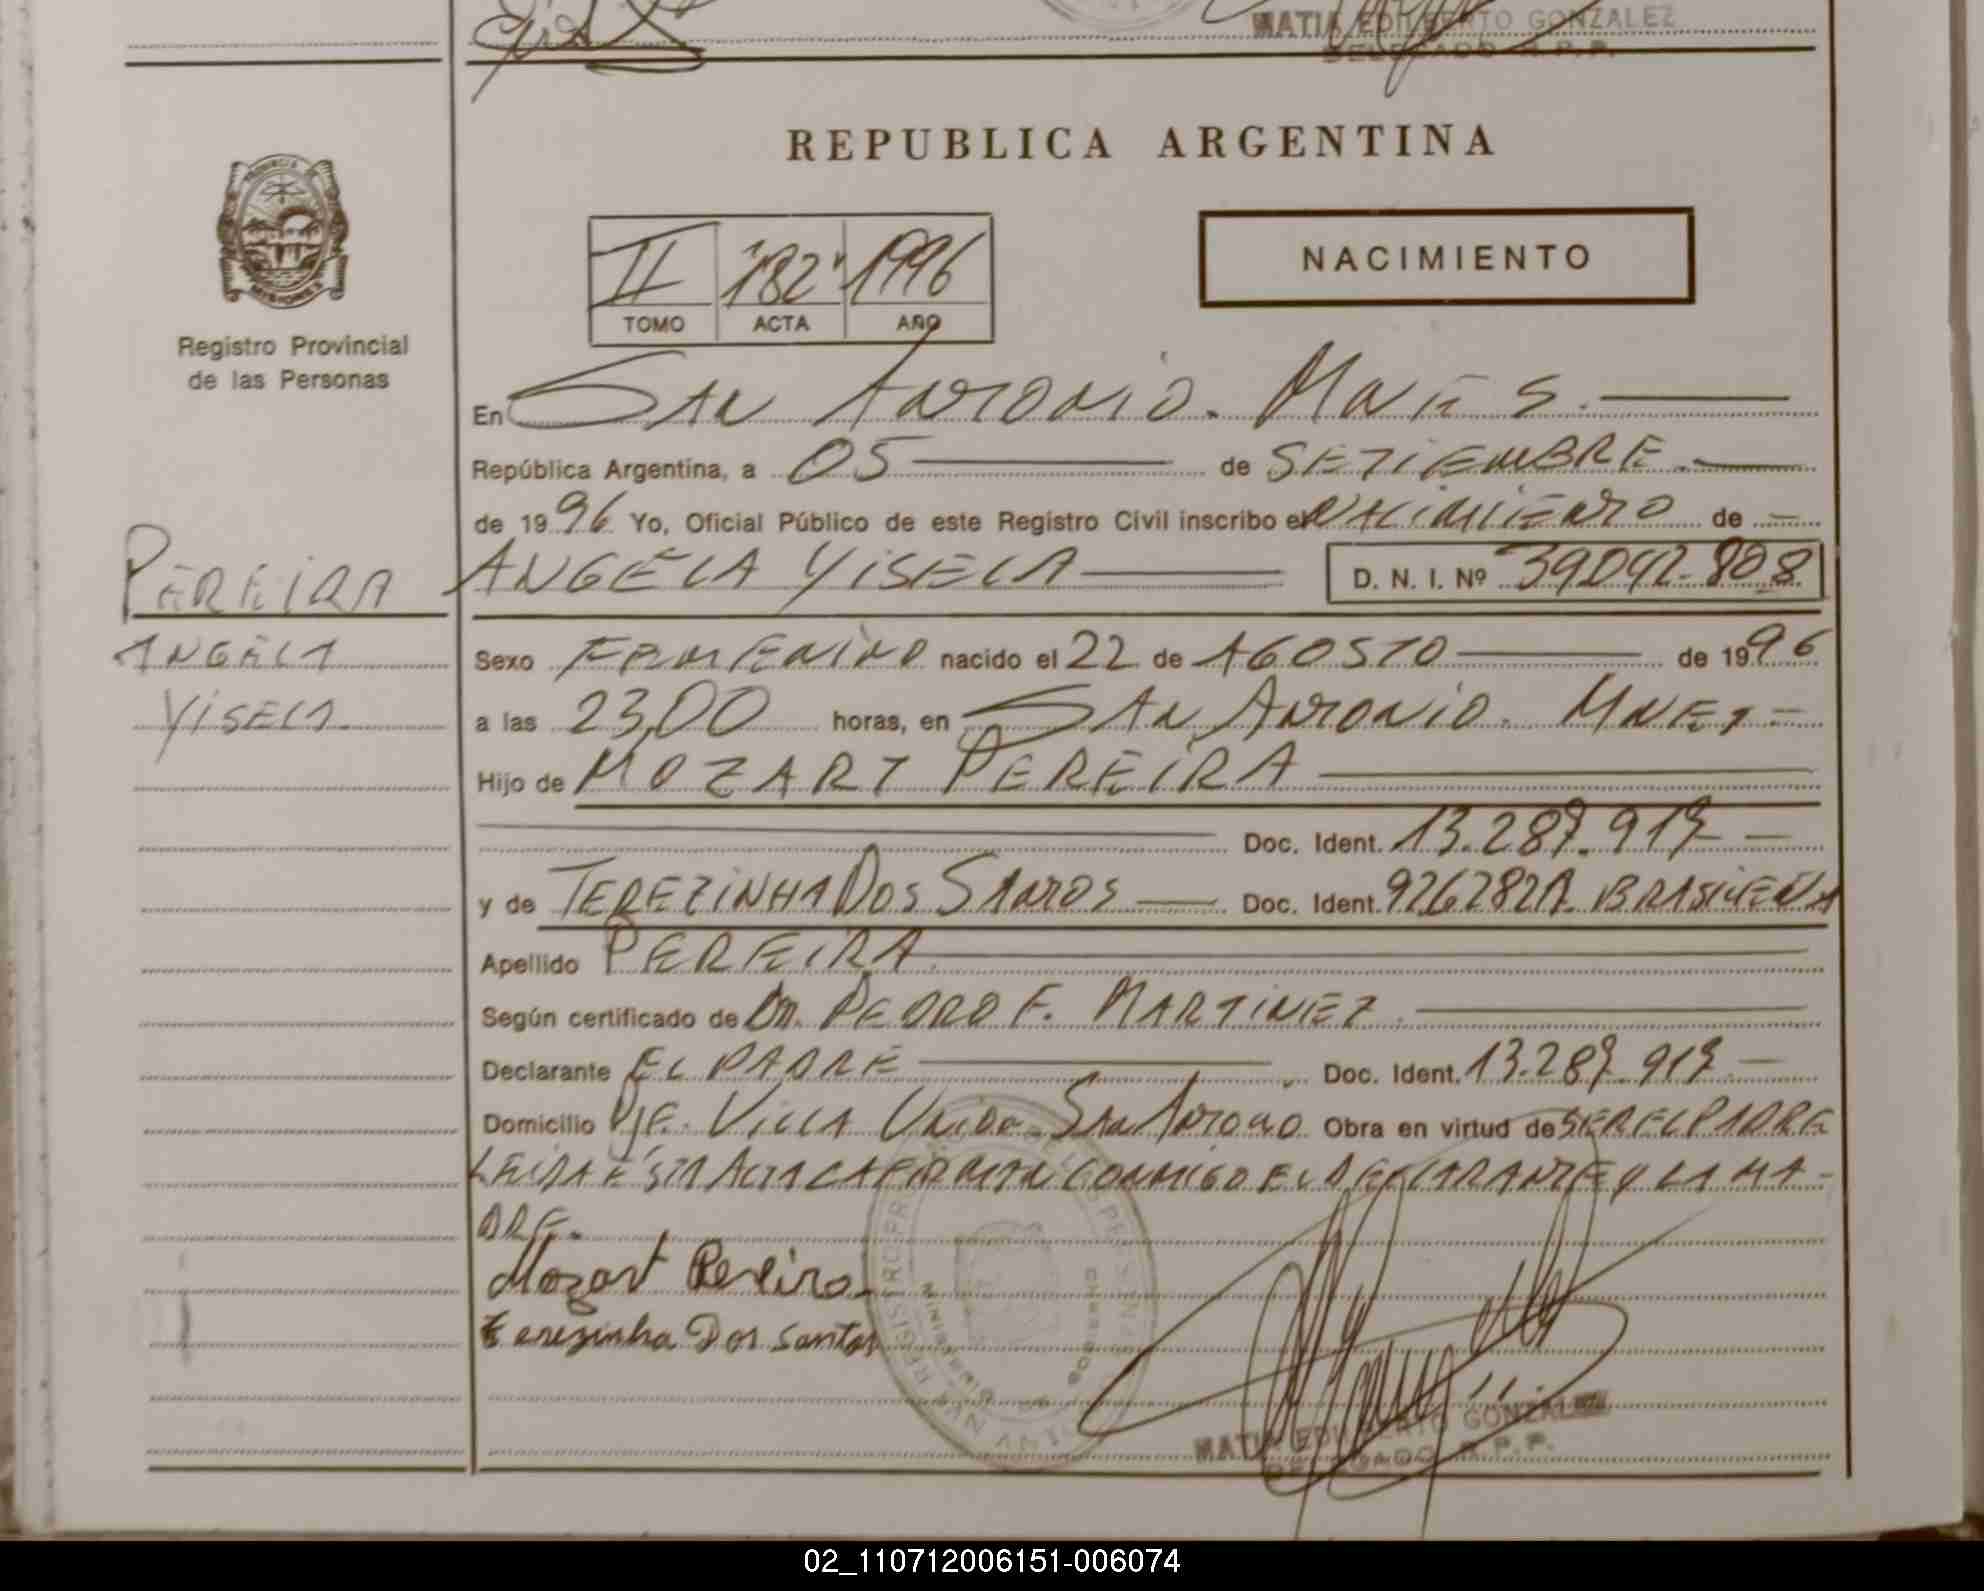 MATIA EDILBERTO GONZALEZ
DELEGADO R.P.P.
REPUBLICA ARGENTINA
NACIMIENTO
II "182" 1996
TOMO ACTA AÑO
Registro Provincial
de las Personas
En SAN ANTONIO. MNES.
República Argentina, a 05 de SETIEMBRE.
de 1996 Yo, Oficial Público de este Registro Civil inscribo el NACIMIENTO de
ANGELA YISELA D. N. I. Nº 39042.808
PEREIRA
ANGELA
YISELA
Sexo FEMENINO nacido el 22 de AGOSTO de 1996
a las 23,00 horas, en SAN ANTONIO. MNES
Hijo de MOZART PEREIRA
Doc. Ident. 13.287.917
y de TEREZINHA DOS SANTOS Doc. Ident. BRASILEÑA
Apellido PEREIRA.
Según certificado de DR. PEDRO F. MARTINEZ.
Declarante EL PADRE Doc. Ident. 13.287.917
Domicilio PJE. VILLA UNION SAN ANTONIO Obra en virtud de SER EL PADRE
LEIDA ESTA ACTA LA FIRMAN CONMIGO EL DECLARANTE Y LA MA-
DRE.
Mozart Pereira
terezinha Dos santos
MATIA EDILBERTO GONZALEZ
DELEGADO R.P.P.
02_110712006151-006074